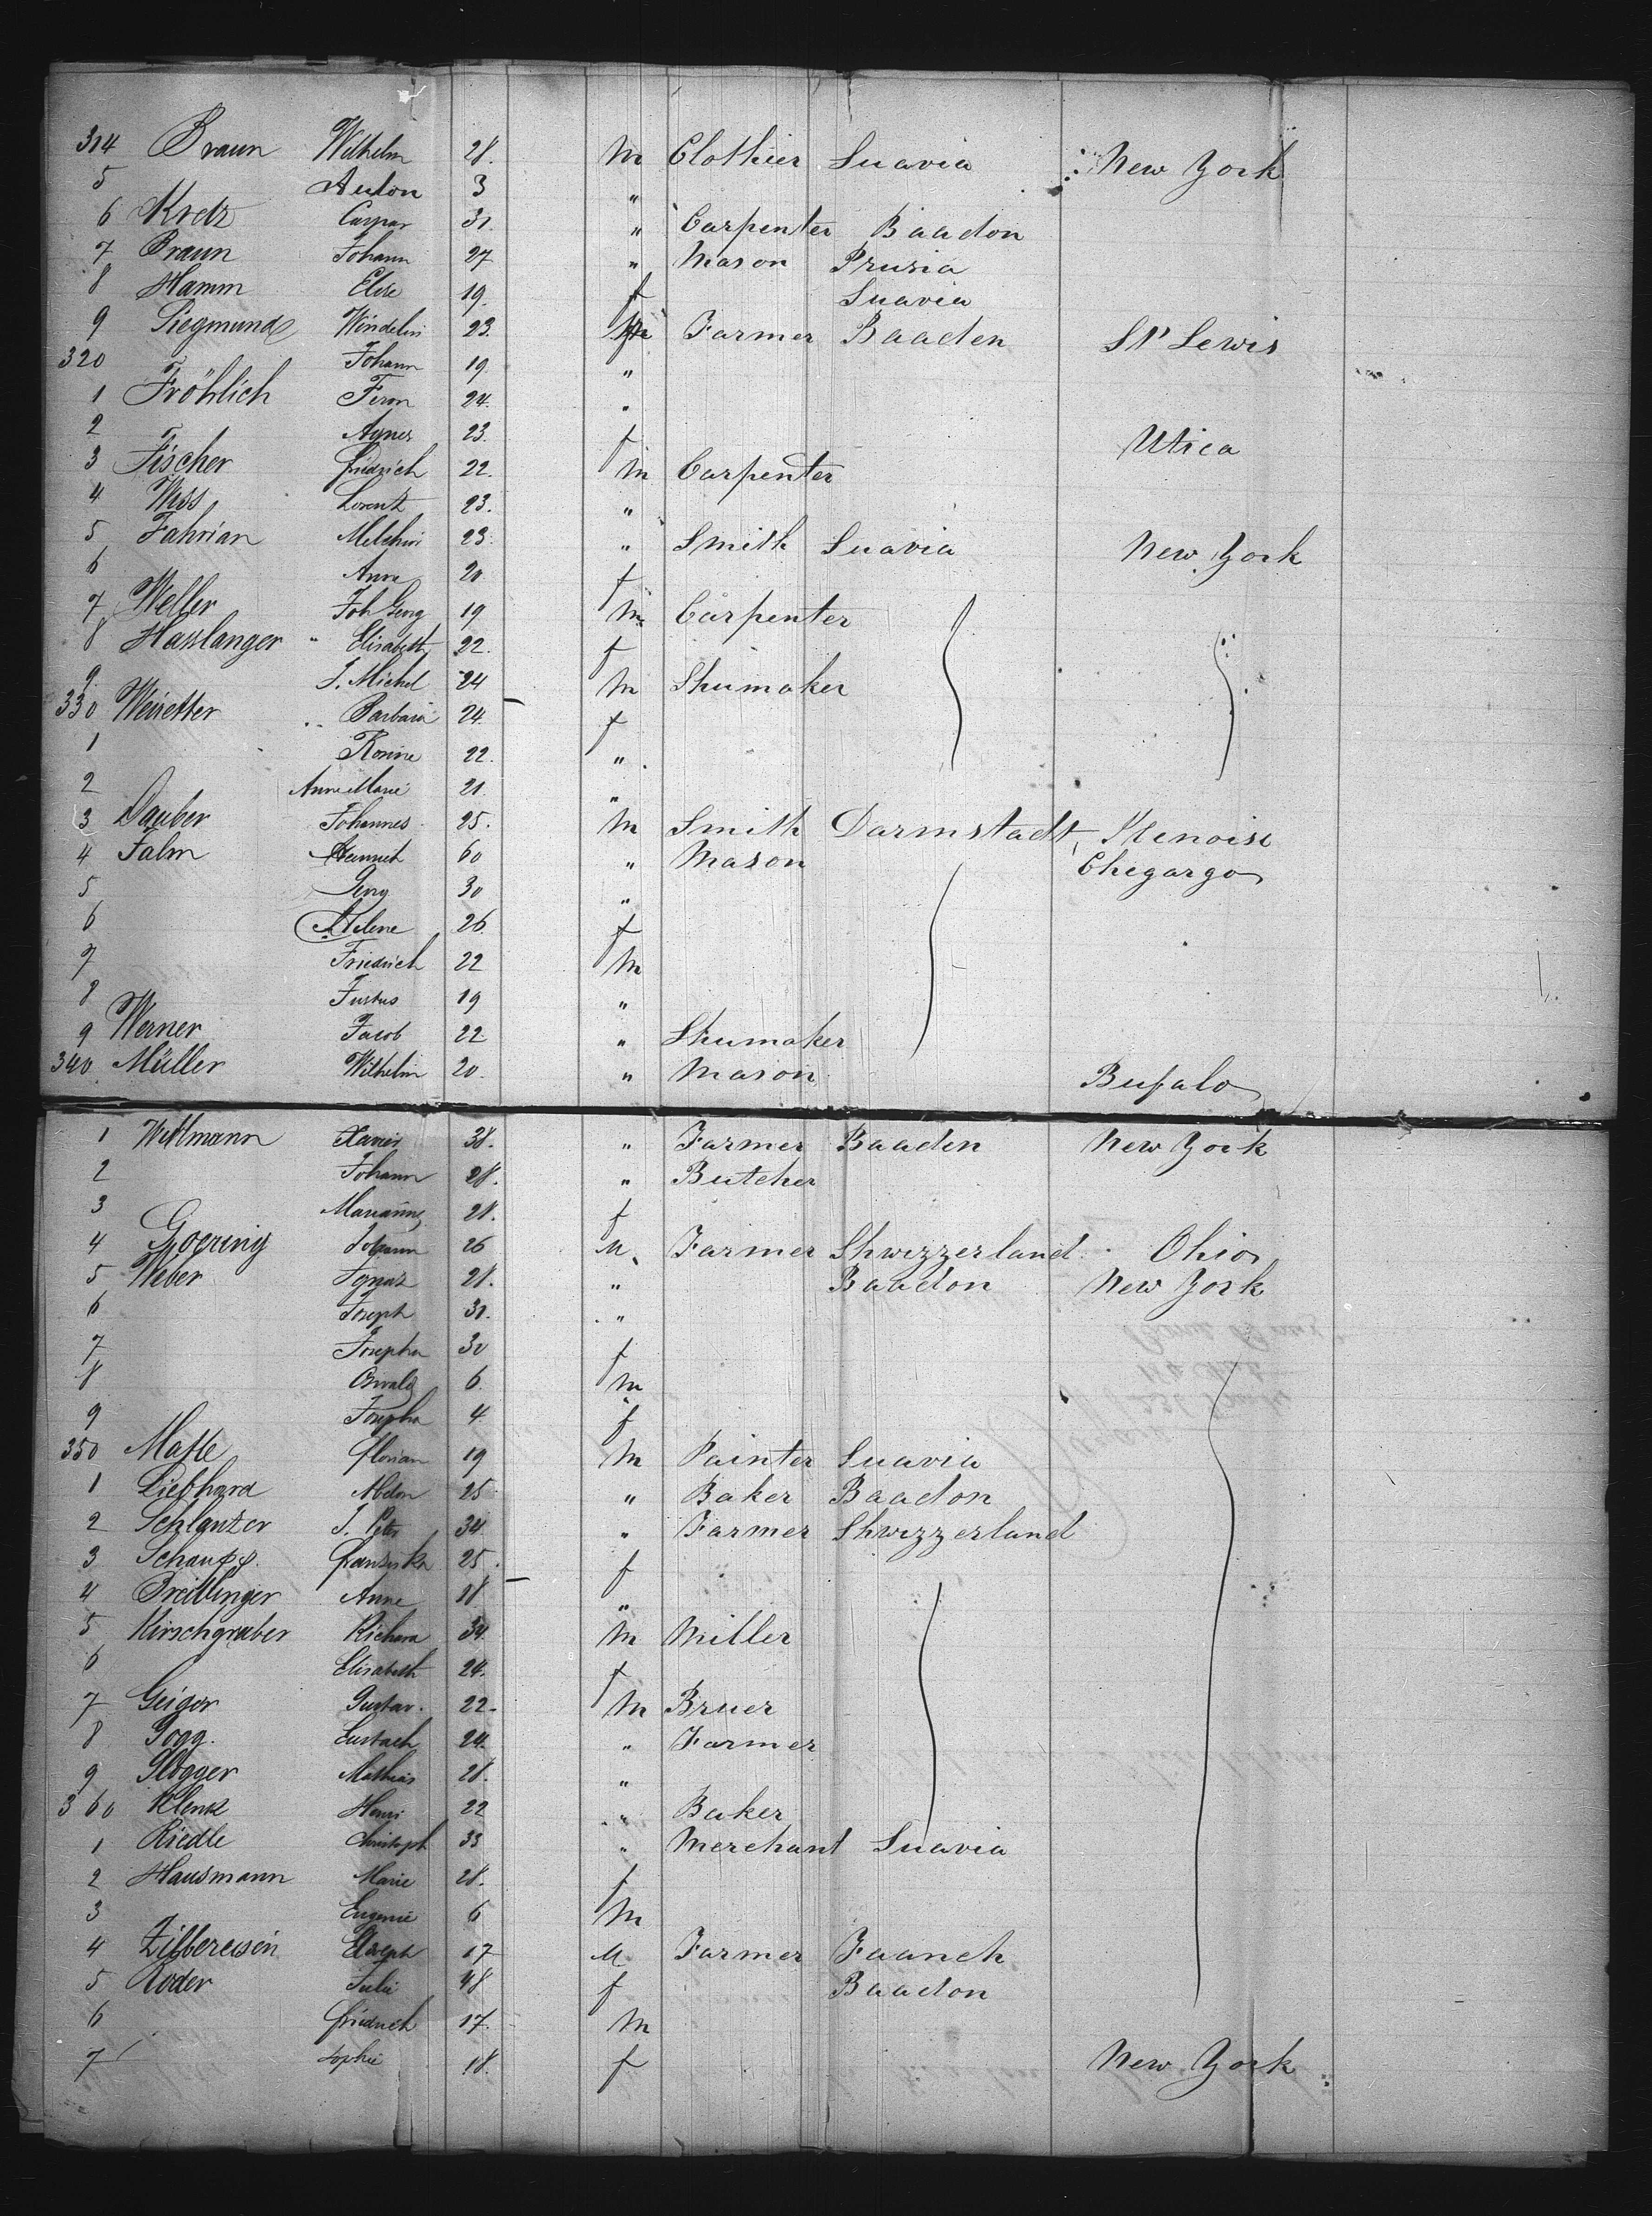 314 Braun Wilhelm 28. m Clothier Suavia New York
5 Anton 3 "
6 Kretz Caspar 31. " Carpenter Baadon
7 Braun Johann 27 " Mason Prusia
8 Hamm Elise 19. f Suavia
9 Siegmund Windelin 23. Farmer Baaden St Lewis
320 Johann 19. "
1 Fröhlich Ferm 24. "
2 Agnes 23. f Utica
3 Fischer Friedrich 22. m Carpenter
4 Wiss Lorentz 23. "
5 Fahrian Melchior 23. " Smith Suavia New York
6 Anna 20 f
7 Weller Joh Georg 19 m Carpenter
8 Hasslanger " Elisabeth 22. f
9 J. Michel 24 m Shumaker
330 Weiretter " Barbara 24. f
1 Rosine 22. "
2 Anne Marie 21. "
3 Dauber Johannes 25. m Smith Darmstadt, Illenoise
4 Falm Heinrich 60 " Mason Chegargo
5 Georg 30 "
6 Helene 26. f
7 Friedrich 22 m
8 Justus 19 "
9 Werner Jacob 22 " Shumaker
340 Müller Wilhelm 20. " Mason Bufalo
1 Wittmann Xavier 38. " Farmer Baaden New York
2 Johann 28. " Butcher
3 Marianne 28. f
4 Goering Johann 26 M Farmer Shwizzerland Ohio
5 Weber Ignaz 28. " Baadon New York
6 Joseph 31. "
7 Josepha 30 f
8 Oswald 6. m
9 Josepha 4. f
350 Florian 19 m Painter Suavia
1 Liebhard Abdon 25 " Baker Baadon
2 Schlanzer J. Peter 34 " Farmer Shwizzerland
3 Schaupp. Fransiska 25. f
4 Breitlinger Anne 18 "
5 Kirschgraber Richard 34. m Miller
6 Elisabeth 24. f
7 Geiger Gustav. 22. m Bruer
8 Gogg. Eustach 24. " Farmer
9 Glogger Mathias 28. "
360 Klenk Henri 22 " Baker
1 Riedle Christoph 33 " Merchant Suavia
2 Hausmann Marie 28. f
3 Eugenie 6 m
4 Zilbereisen Adolph 17 M Farmer Faanch
5 Roder Julie 48 f Baadon
6 Friedrich 17. m
7 Sophie 18. f New York